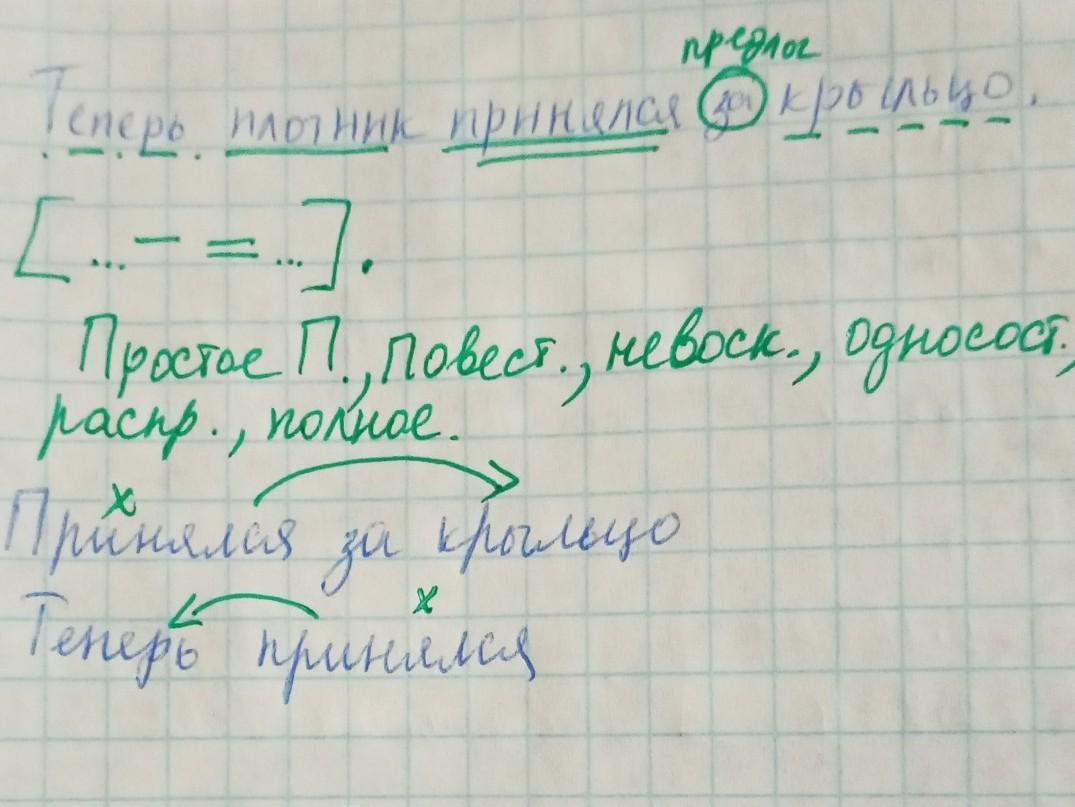 предлог
Теперь плотник принялся за крыльцо.
[... – = ...].
Простое П., повест., невоск., односост.,
распр., полное.
х
Принялся за крыльцо
х
Теперь принялся